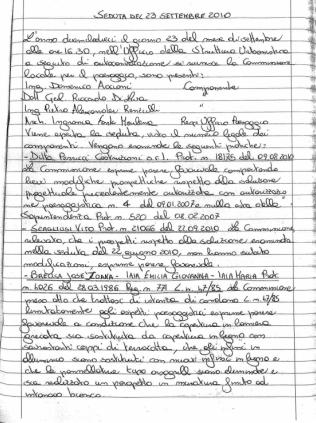 SEDUTA DEL 23 SETTEMBRE 2010
L'anno duemiladieci il giorno 23 del mese di settembre
alle ore 16.30, nell'Ufficio della Struttura Urbanistica
a seguito di autoconvocazione si riunisce la Commissione
locale per il paesaggio, sono presenti:
Ing. Domenico Componente
Dott. Geol. Riccardo "
Ing. Pietro Alessandro "
Arch. Ufficio Paesaggio
Viene aperta la seduta, visto il numero legale dei
componenti. Vengono esaminate le seguenti pratiche:
- Ditta Costruzioni s.r.l. Prot. n. 18175 del 09.08.2010
La Commissione esprime parere favorevole comportando
lievi modifiche prospettiche rispetto alla soluzione
progettuale precedentemente autorizzata con autorizzazione
paesaggistica n. 4 del 09.01.2007 e nulla osta della
Soprintendenza Prot. n. 520 del 02.02.2007
- VITO Prot. n. 21066 del 22.09.2010 la Commissione,
rilevato che i prospetti rispetto alla soluzione esaminata
nella seduta del 22 giugno 2010, non hanno subito
modificazioni, esprime parere favorevole
- JOSE' - IAIA EMILIA GIOVANNA - IAIA MARIA Prot.
n. 4026 del 28.03.1986 Reg. n. 771 L. n. 47/85 la Commissione
preso atto che trattasi di istanza di condono L. 47/85
limitatamente agli aspetti paesaggistici esprime parere
favorevole a condizione che la copertura in lamiera
grecata sia sostituita da copertura in legno con
coppi di terracotta, che gli infissi in
alluminio siano sostituiti con nuovi infissi in legno e
che le pannellature tipo siano eliminate e
sia realizzato un parapetto in muratura finito ad
intonaco bianco.